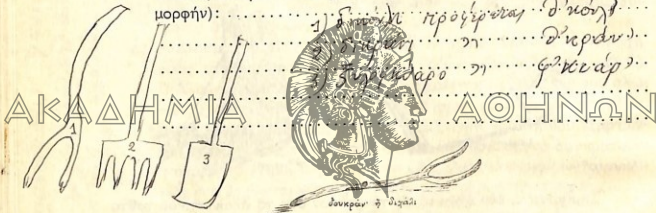 μορφήν):
1) δικούλι προφέρεται δ'κούλ'
2) δικράνι " δ'κράν'
3) ξυλόφκυαρο " φ'κυάρ'
ΑΚΑΔΗΜΙΑ ΑΘΗΝΩΝ
1
2
3
δουκράν' ἢ διχάλι